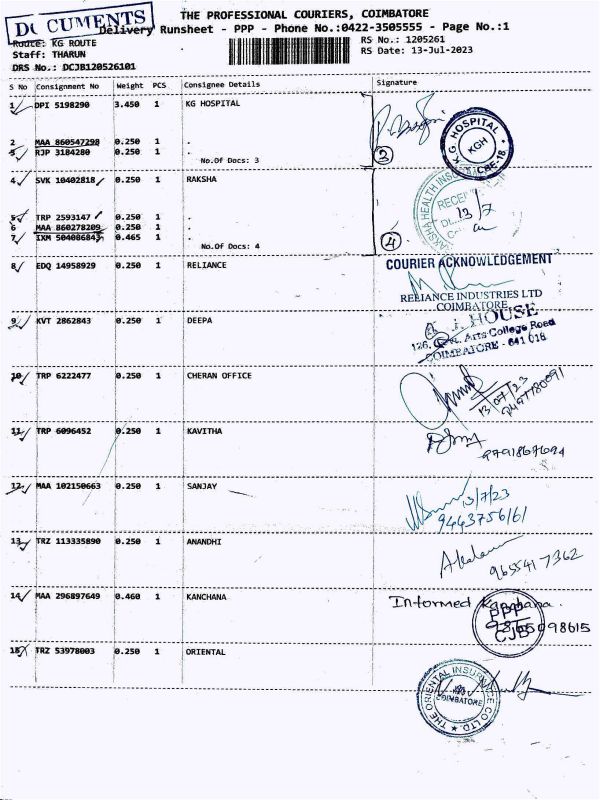 DOCUMENTS
THE PROFESSIONAL COURIERS, COIMBATORE
Delivery Runsheet - PPP - Phone No.:0422-3505555 - Page No.:1
Route: KG ROUTE
RS No.: 1205261
Staff: THARUN
RS Date: 13-Jul-2023
DRS No.: DCJB120526101
S No Consignment No Weight PCS Consignee Details Signature
1 DPI 5198290 3.450 1 KG HOSPITAL
2 MAA 860547298 0.250 1 .
3 RJP 3184280 0.250 1 .
No.Of Docs: 3
3
K.G. HOSPITAL
KGH
CBE-18.
4 SVK 10402818 0.250 1 RAKSHA
5 TRP 2593147 0.250 1 .
6 MAA 860278209 0.250 1 .
7 IXM 504086843 0.465 1 .
No.Of Docs: 4
4
RAKSHA HEALTH
13/7
8 EDQ 14958929 0.250 1 RELIANCE
COURIER ACKNOWLEDGEMENT
RELIANCE INDUSTRIES LTD
COIMBATORE
9 KVT 2862843 0.250 1 DEEPA
J. HOUSE
126, Arts College Road
COIMBATORE - 641 018
10 TRP 6222477 0.250 1 CHERAN OFFICE
13/07/23
11 TRP 6096452 0.250 1 KAVITHA
12 MAA 102150663 0.250 1 SANJAY
13/7/23
9443756161
13 TRZ 113335890 0.250 1 ANANDHI
9655417362
14 MAA 296897649 0.460 1 KANCHANA
Informed Kanchana.
9865098615
PPP
CJB
15 TRZ 53978003 0.250 1 ORIENTAL
THE ORIENTAL INSURANCE CO LTD.
COIMBATORE